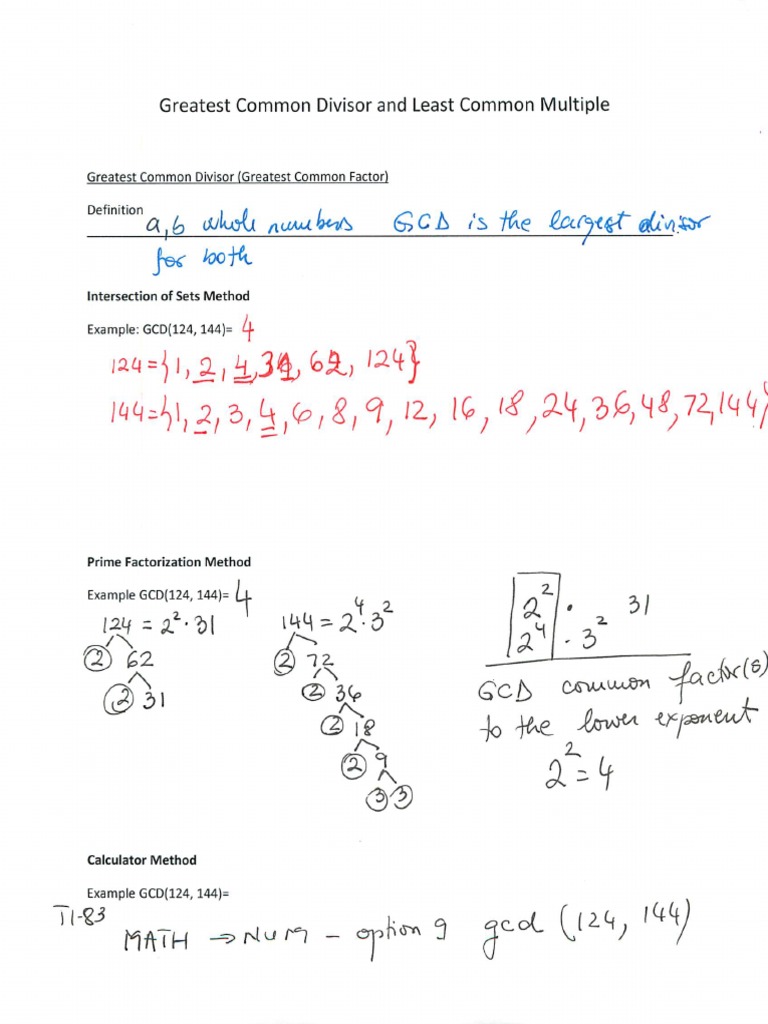 Greatest Common Divisor and Least Common Multiple
Greatest Common Divisor (Greatest Common Factor)
Definition a, b whole numbers GCD is the largest divisor
for both
Intersection of Sets Method
Example: GCD(124, 144)= 4
124={1, 2, 4, 31, 62, 124}
144={1, 2, 3, 4, 6, 8, 9, 12, 16, 18, 24, 36, 48, 72, 144}
Prime Factorization Method
Example GCD(124, 144)= 4
124 = 2²·31
2 62
2 31
144 = 2⁴·3²
2 72
2 36
2 18
2 9
3 3
2² · 31
2⁴ · 3²
GCD common factor(s)
to the lower exponent
2² = 4
Calculator Method
Example GCD(124, 144)=
TI-83
MATH → NUM – option 9 gcd (124, 144)